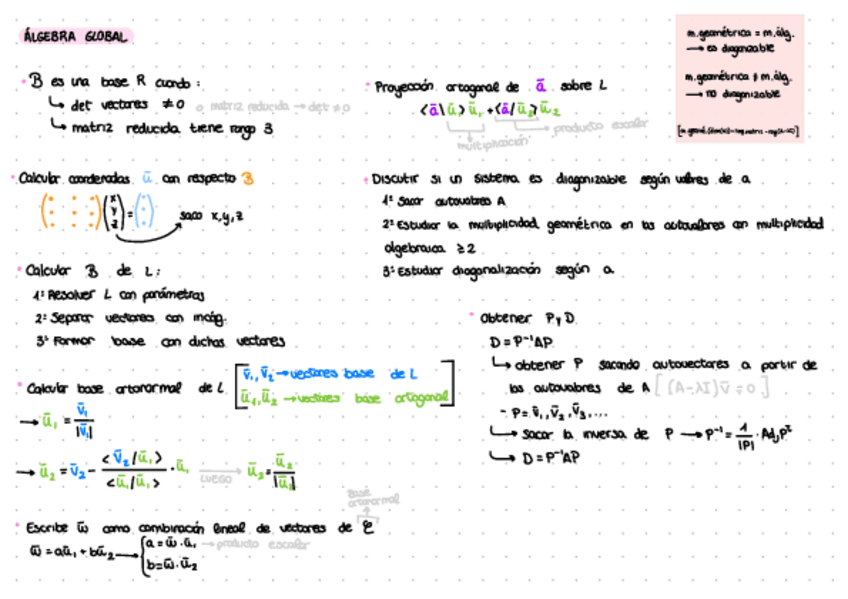 ÁLGEBRA GLOBAL
m.geométrica = m.álg.
→ es diagonizable
m.geométrica ≠ m.álg.
→ no diagonizable
· B es una base R cuando:
↳ det vectores ≠ 0 o matriz reducida → det ≠ 0
↳ matriz reducida tiene rango 3
· Proyección ortogonal de ā sobre L
<ā\ū₁> ū₁ + <ā/ū₂> ū₂
multiplicación
producto escalar
· Calcular coordenadas ū con respecto B
(x y z) = saco x,y,z
· Discutir si un sistema es diagonizable según valores de a
1º Sacar autovalores A
2º Estudiar la multiplicidad geométrica en los autovalores con multiplicidad
algebraica ≥ 2
3º Estudiar diagonalización según a
· Calcular B de L:
1º Resolver L con parámetros
2º Separar vectores con incóg.
3º Formar base con dichos vectores
· Obtener P y D
D = P⁻¹AP
↳ obtener P sacando autovectores a partir de
los autovalores de A [(A-λI)v̄ = 0]
- P = v̄₁, v̄₂, v̄₃, ...
↳ sacar la inversa de P → P⁻¹ = 1/|P| · Adj Pᵗ
↳ D = P⁻¹AP
· Calcular base ortonormal de L
v̄₁, v̄₂ → vectores base de L
ū₁, ū₂ → vectores base ortogonal
→ ū₁ = v̄₁/|v̄₁|
→ ū₂ = v̄₂ - <v̄₂/ū₁>/<ū₁/ū₁> · ū₁ LUEGO → ū₂ = ū₂/|ū₂|
Base
ortonormal
· Escribe w̄ como combinación lineal de vectores de C
w̄ = aū₁ + bū₂ → { a = w̄·ū₁ → producto escalar
b = w̄·ū₂